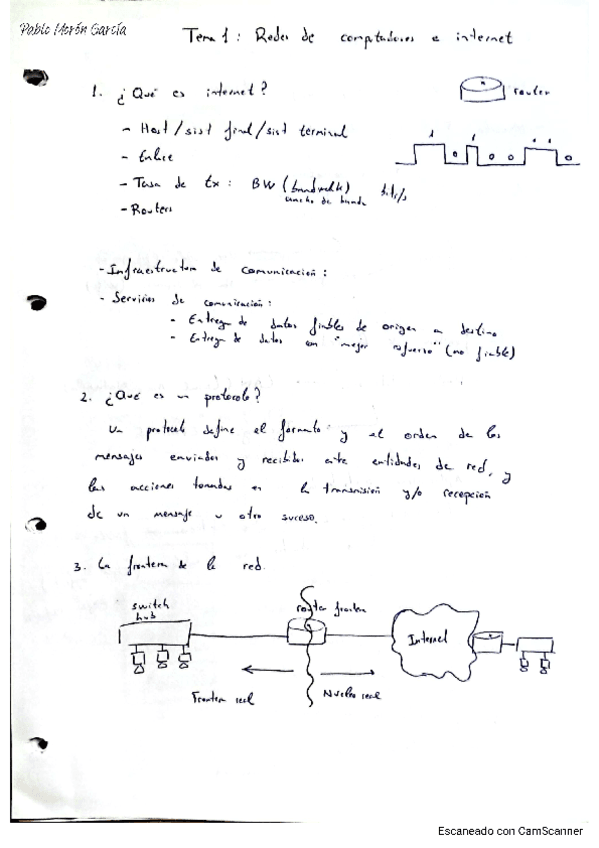 Pablo Morón García
Tema 1: Redes de computadores e internet
1. ¿Qué es internet?
router
- Host/sist final/sist terminal
- Enlace
1 0 1 0 0 1 1 0
- Tasa de tx: BW (bandwidth) bits/s
ancho de banda
- Routers
- Infraestructura de comunicación:
- Servicios de comunicación:
- Entrega de datos fiables de origen a destino
- Entrega de datos con "mejor esfuerzo" (no fiable)
2. ¿Qué es un protocolo?
Un protocolo define el formato y el orden de los
mensajes enviados y recibidos entre entidades de red, y
las acciones tomadas en la transmisión y/o recepción
de un mensaje u otro suceso.
3. La frontera de la red.
switch
hub
router frontera
Internet
Frontera red
Nucleo red
Escaneado con CamScanner